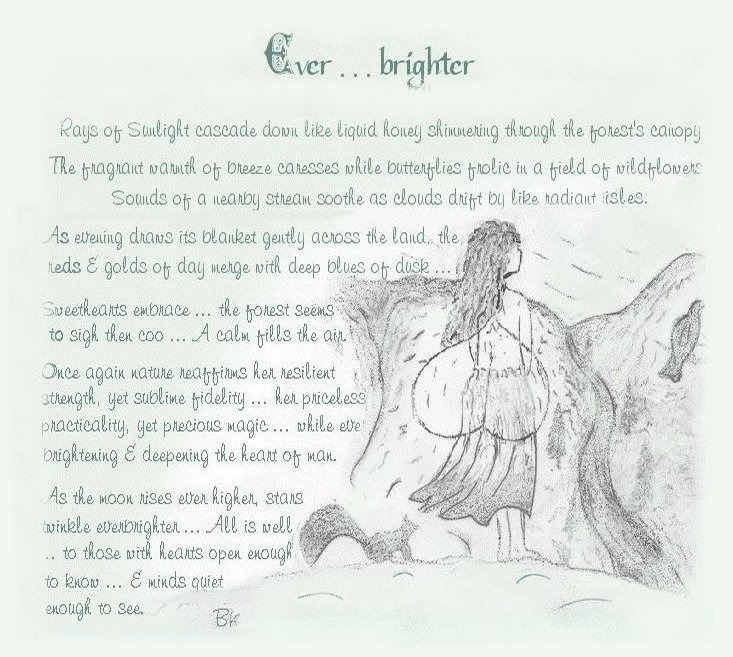 Ever . . . brighter
Rays of Sunlight cascade down like liquid honey shimmering through the forest's canopy
The fragrant warmth of breeze caresses while butterflies frolic in a field of wildflowers
Sounds of a nearby stream soothe as clouds drift by like radiant isles.
As evening draws its blanket gently across the land, the
reds & golds of day merge with deep blues of dusk ...
Sweethearts embrace ... the forest seems
to sigh then coo ... A calm fills the air
Once again nature reaffirms her resilient
strength, yet sublime fidelity ... her priceless
practicality, yet precious magic ... while eve
brightening & deepening the heart of man.
As the moon rises ever higher, stars
twinkle everbrighter ... All is well
.. to those with hearts open enough
to know ... & minds quiet
enough to see.